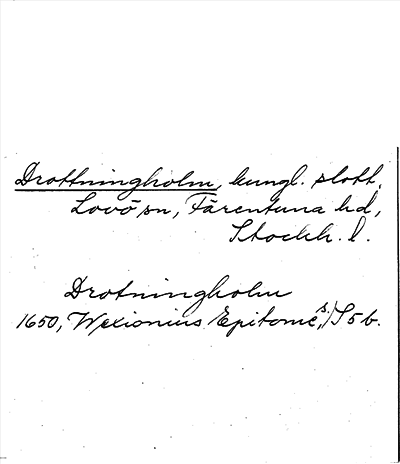 Drottningholm, kungl. slott,
Lovö sn, Färentuna hd,
Stockh. l.
Drotningholm
1650, Wexionius Epitome, S 5 b.